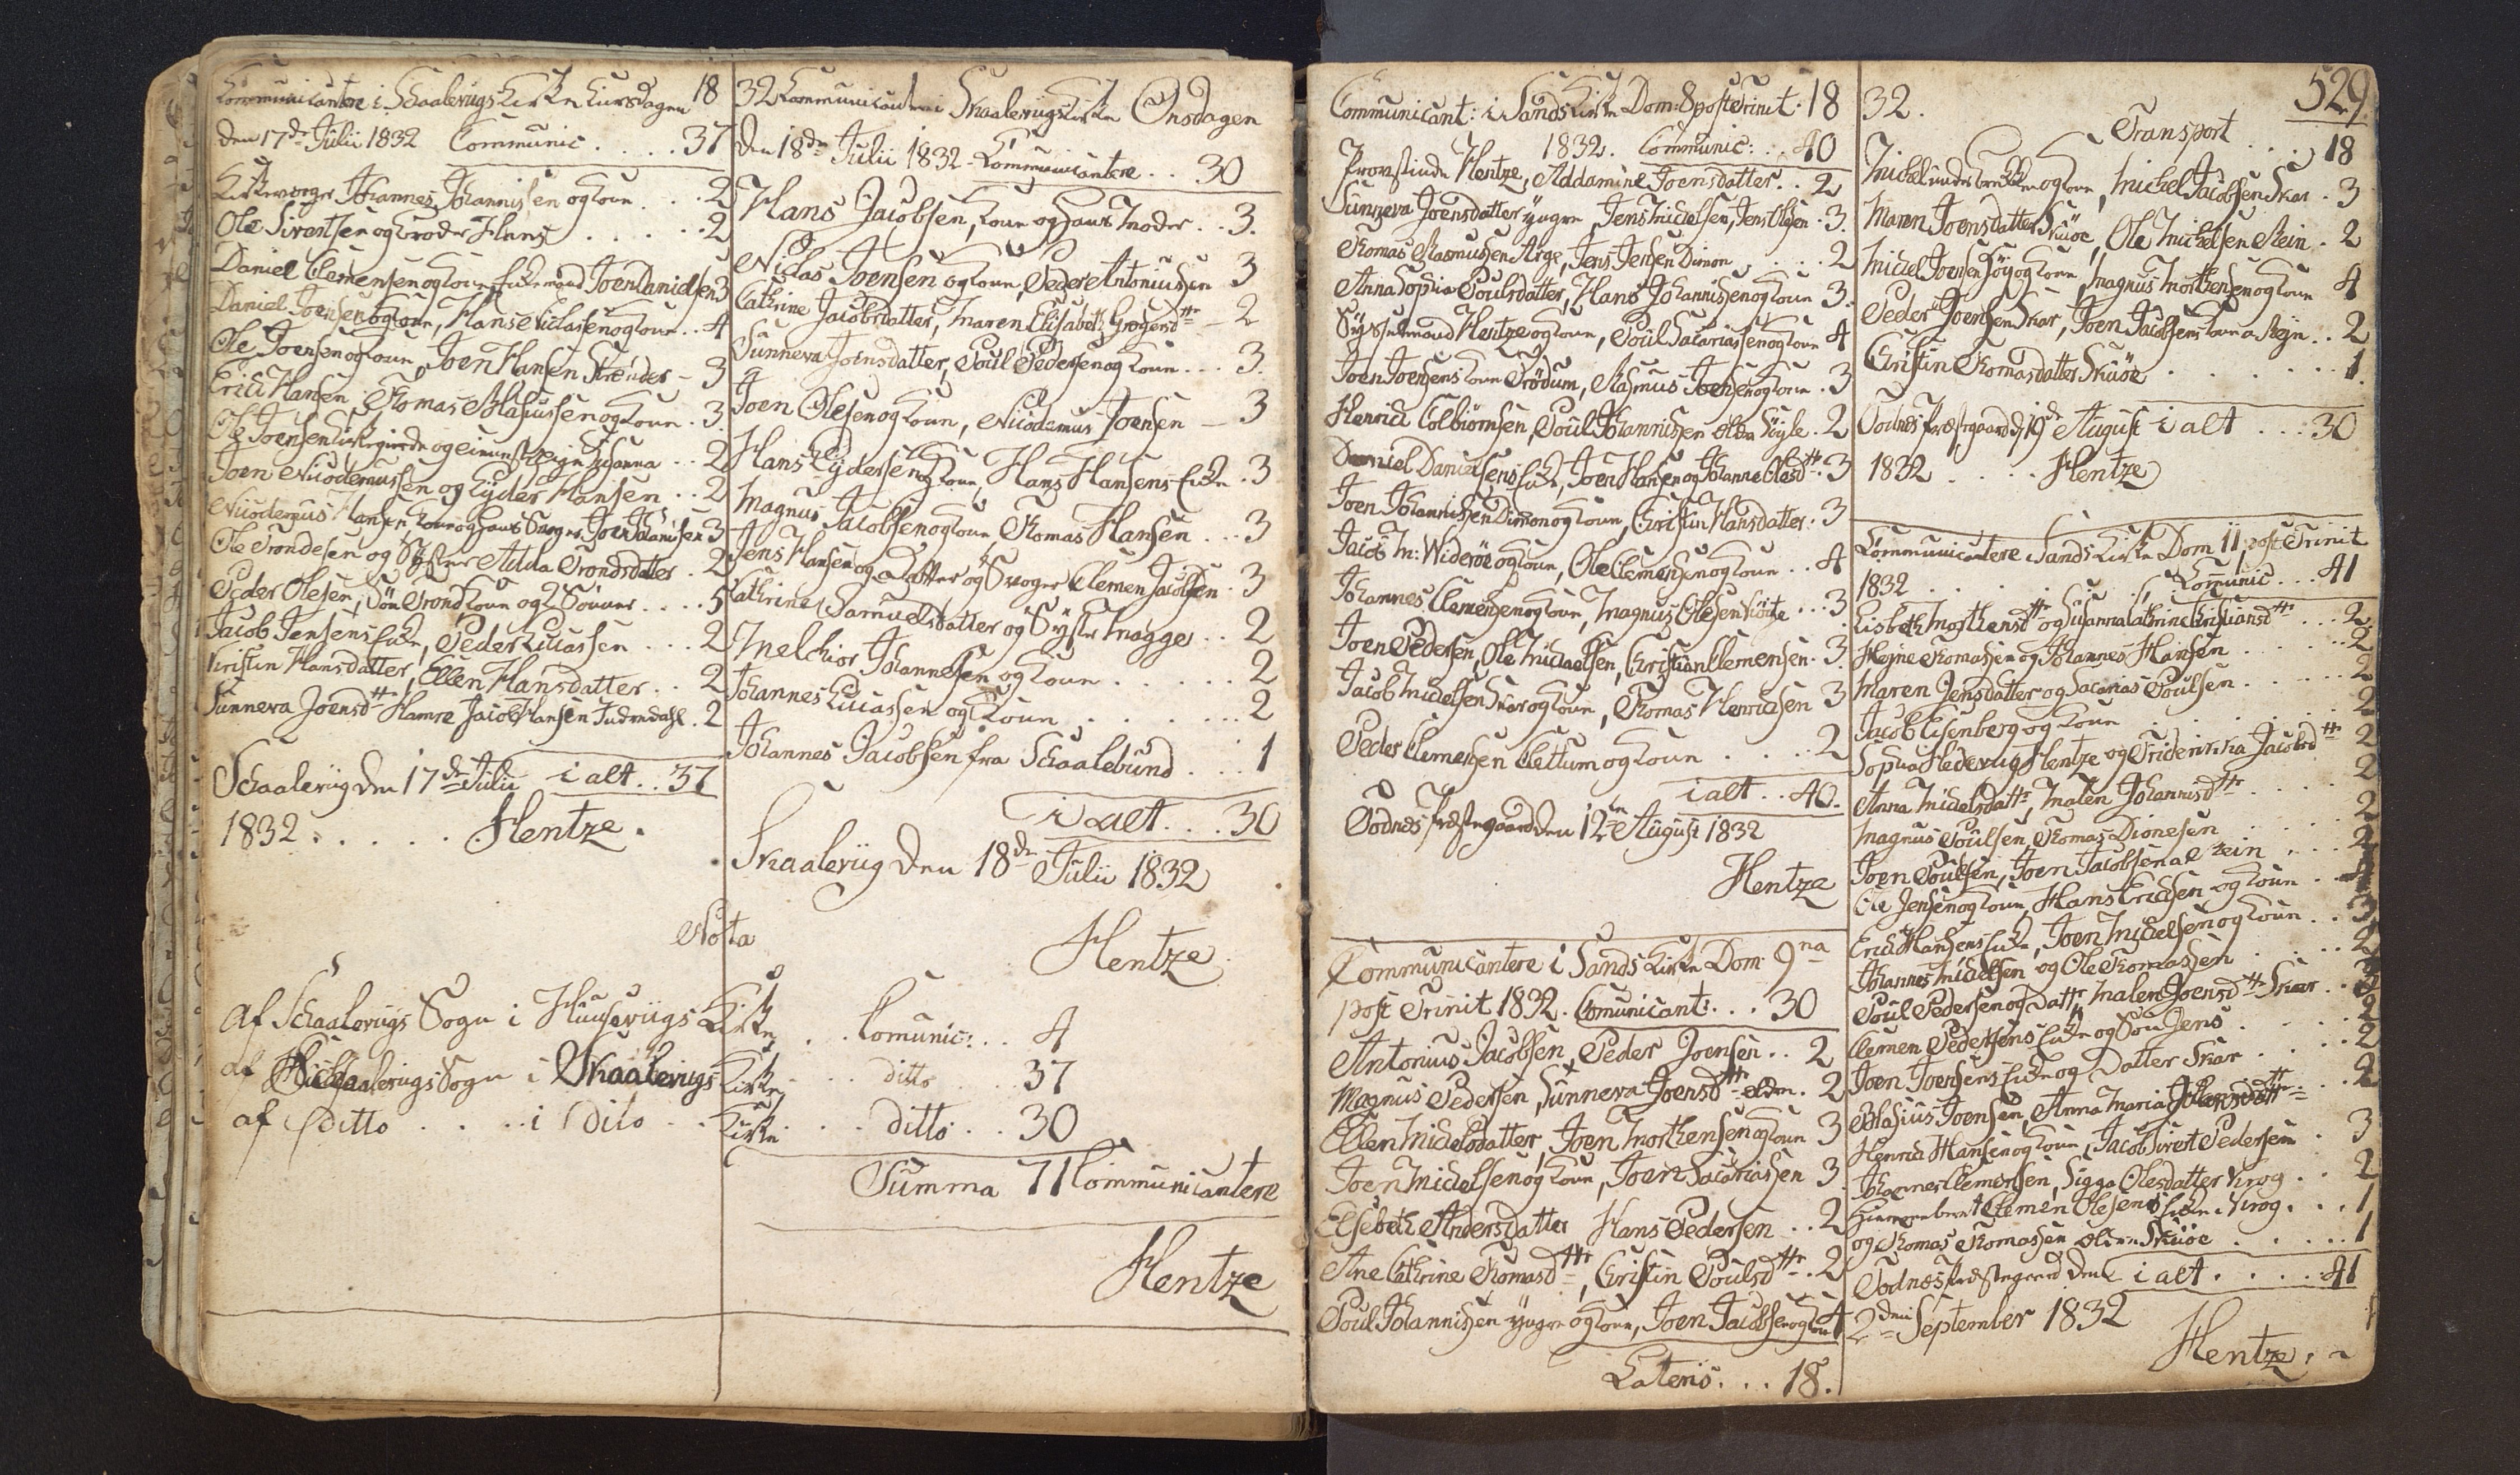 Communicantere i Schaalevigs Kirke Tirsdagen 18
den 17de Julii 1832 Communic . . . . 37
Kirkeværger Johannes Johannissen og Kone . . . 2
Ole Sivertsen og Broder Hans . . . . . 2
Daniel Clemensen og Kone, Joen Danielsen 3
Daniel Joensen og Kone, Hans Niclasen og Kone . . 4
Ole Joensen og Kone, Joen Hansen Strender - 3
Erich Hansen, Thomas Rasmussen og Kone . 3.
Ole Joensen og Susanna . . 2
Joen Nicodemussen og Eyder Hansen . . 2
Nicodemus Hansen Kone og hans Svoger Joen Johanisen 3
Ole Trondesen og Syster Adda Trondsdatter . 2
Peder Olesen, Søn Trond Kone og 2 Sönner . . . . 5
Jacob Jensens Enke, Peder Lucassen . . . 2
Kristin Hansdatter, Ellen Hansdatter . . 2
Sunneva Joensdttr Hamre Jacob Hansen Indredahl . 2
Schaalevig den 17de Julii i alt . . 37
1832 . . . . . . Hentze .
32 Communicantere i Skaalevigs Kirke Onsdagen
den 18de Julii 1832 - Communicantere . . 30
Hans Jacobsen, Kone og hans Moder . . 3.
Niclas Joensen og Kone, Peder Antoniussen 3
Cathrine Jacobsdatter, Maren Elisabeth Gregersdttr - 2
Sunneva Joensdatter, Poul Pedersen og Kone . . . 3.
Joen Olesen og Kone, Nicodemus Joensen - 3
Hans Eydersen og Kone, Hans Hansens Enke . 3
Magnus Jacobsen og Kone Thomas Hansen . . . 3
Jens Hansen og Datter og Svoger Clemen Jacobsen . 3
Cathrine Samuelsdatter og Syster Magge . . 2
Melchior Johannesen og Kone . . . . . . 2
Johannes Lucassen og Kone . . . . . . . 2
Johannes Jacobsen fra Schaalebund . . . 1
i alt . . . 30
Skaalevig den 18de Julii 1832
Hentze
Nota
Af Schaalevigs Sogn i Huusevigs Kirke . . Comunic: . . 4
af Schaalevigs Sogn i Skaalevigs Kirke . . . ditto . . . 37
af ditto . . . . i dito . . Kirke . . . ditto . . 30
Summa 71 Communicantere
Hentze
Communicant: i Sands Kirke Dom: 8 post Trinit . 18
1832. Communic: . . 40
Provstinde Hentze, Addamine Joensdatter . . 2
Sunneva Joensdatter yngre, Jens Michelsen, Jens Olesen . 3.
Thomas Rasmussen Arge, Jens Jensen Dimon . . . . 2
Anna Sophia Poulsdatter, Hans Johannissen og Kone 3.
Sysselmand Hentze og Kone, Poul Sacariassen og Kone 4
Joen Joensens Kone Trödum, Rasmus Joensen og Kone . 3
Henrich Colbiörnsen, Poul Johannissen . 2
Daniel Danielsens Enke, Joen Hansen og Johanne Olesdttr . 3
Joen Johannissen Dimon og Kone, Cristin Hansdatter . 3
Jacob M: Wideröe og Kone, Ole Clemensen og Kone . . 4
Johannes Clemensen og Kone, Magnus Olesen . . . 3
Joen Pedersen, Ole Michaelsen, Christian Clemensen . 3
Jacob Michelsen Skar og Kone, Thomas Henrichsen 3
Peder Clemensen Clettum og Kone . . . . 2
i alt . . 40.
Todnes Præstegaard den 12te August 1832
Hentze
Communicantere i Sands Kirke Dom 9na
post Trinit 1832. Comunicant: . . . 30
Antonius Jacobsen, Peder Joensen . . 2
Magnus Pedersen, Sunneva Joensdttr elder . 2
Ellen Michelsdatter, Joen Morthensen og Kone 3
Joen Michelsen og Kone, Joen Sacariassen 3
Elsebeth Andersdatter Hans Pedersen . . 2
Ane Cathrine Thomasdttr, Cristin Poulsdttr . 2
Poul Johannissen yngre og Kone, Joen Jacobsen og Kone 4
Lateris . . . 18.
529
32.
Transport . . . 18
og Kone, Michel Jacobsen Skar . 3
Maren Joensdatter Skuöe, Ole Michelsen Rein . 2
Michel Joensen og Kone, Magnus Morthensen og Kone 4
Peder Joensen Skar, Joen Jacobsens Kone a Rejn . . 2
Christin Thomasdatter Skuöe . . . . . . 1.
Todnes Præstegaard d 19de August i alt . . . 30
1832 . . . . Hentze
Communicantere i Sands Kirke Dom 11 post Trinit
1832 . . . . . . Communic . . . 41
Lisbeth Morthensdttr og Susanna Cathrine Christiansdttr . . . 2
Hejne Thomassen og Johannes Hansen . . . . . 2
Maren Jensdatter og Sacarias Poulsen . . . . . 2
Jacob Eisenberg og Kone . . . . . . 2
Sophia Hedevig Hentze og Friderikka Jacobsdttr 2
Anna Michelsdattr, Malen Johannisdttr . . . . 2
Magnus Poulsen, Thomas Dionesen . . . . 2
Joen Poulsen, Joen Jacobsen al Rein . . . 2
Ole Jensen og Kone, Hans Erichsen og Kone . . 4
Erich Hansens Enke, Joen Michelsen og Kone . . 3
Johannes Michelsen og Ole Thomassen . . . 2
Poul Pedersen og Dattr Malen Joensdttr Skar . .
Clemen Pedersens Enke og Søn Jens . . . . 2
Joen Joensens Enke og Datter Skar . . . . 2
Blasius Joensen, Anna Maria . . . 2
Henrich Hansen og Kone, Jacob Sivert Pedersen . 3
Johannes Clemensen, Sigga Olesdatter Krog . . 2
Clemen Olesens Enke i Krog . . . 1
og Thomas Thomassen Skuöe . . . . . 1
Todnes Præstegaard den i alt . . . . 41
2den September 1832
Hentze